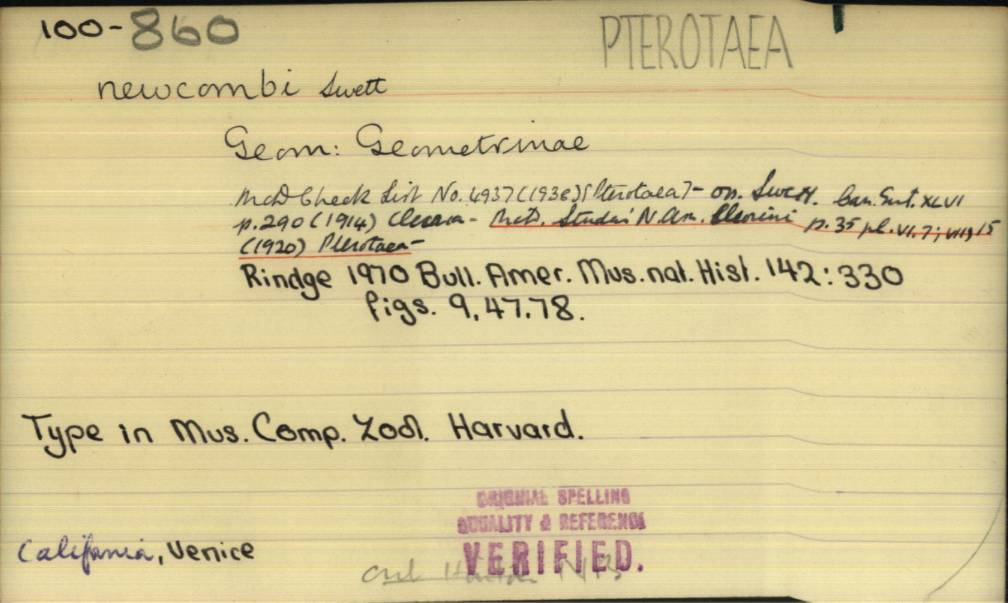 100-860
PTEROTAEA
newcombi Swett
Geom: Geometrinae
McD Check List No. 4937 (1938) [Pterotaea] - op. Swett. Can. Ent. XLVI
p. 290 (1914) Cleora - McD. Studies N. Am. Cleorini p. 35 pl. VI, 7; VIII, 15
(1920) Pterotaea -
Rindge 1970 Bull. Amer. Mus. nat. Hist. 142: 330
figs. 9, 47, 78.
Type in Mus. Comp. Zool. Harvard.
ORIGINAL SPELLING
LOCALITY & REFERENCE
VERIFIED.
California, Venice